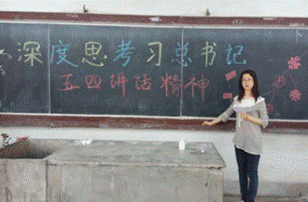 深度思考习总书记
五四讲话精神